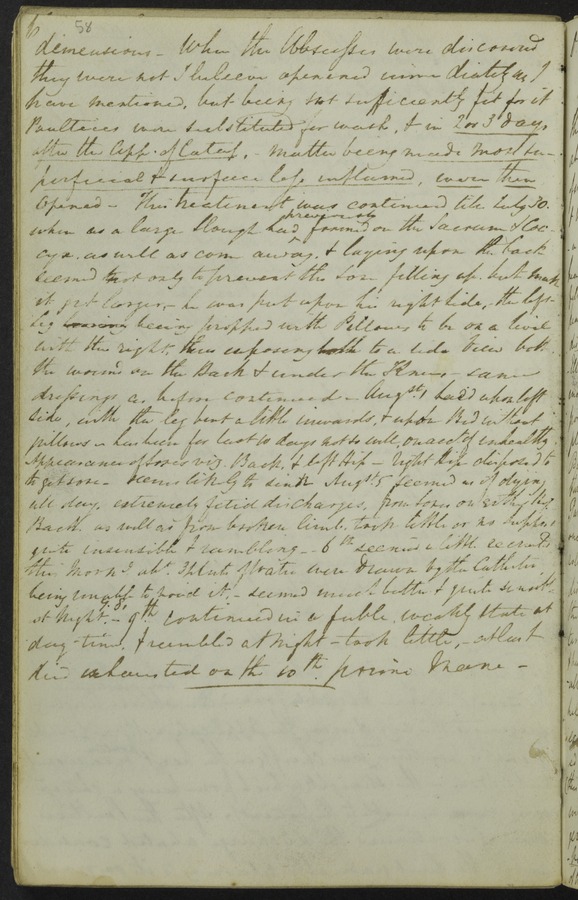 58
dimensions - When the Abscesses were discovered
they were not I believe opened immediately as I
have mentioned, but being not sufficiently fit for it
Poultices were substituted for wash, & in 2 or 3 days
after the App. of Catap. - matter being made most su-
perficial & surface less inflamed, were then
Opened - This treatment was continued till July 30.
when as a large Slough had previously formed on the Sacrum & Coc-
cyx. as well as come away, & laying upon the back
seemed not only to prevent the Sore filling up but make
it get larger, - he was put upon his right side, - the left
leg being propped with Pillows to be on a level
with the right, thus exposing to a side view both
the wound on the Back & under the Knee - same
dressings as before continued - Augst. 1 laid upon left
side, with the leg bent a little inwards, & upon Bed without
pillows - has been for last 10 days not so well, on acct. of unhealthy
Appearance of Sores viz. Back, & left Hip - right Hip disposed to
to get sore - seems likely to sink Augst. 5 seemed as if dying
all day, extremely fetid discharges, from Sores on
Back as well as from broken limb, took little or no support
quite insensible & rambling - 6th seemed a little recruited
this Morng. abt. 3 pints of water were drawn by the Catheter
being unable to void it, - seemed much better & quite
at Night, - 9th continued in a feeble, weakly state at
day-time, & rambled at Night - took little, - at last
died exhausted on the 10th. primo Mane -